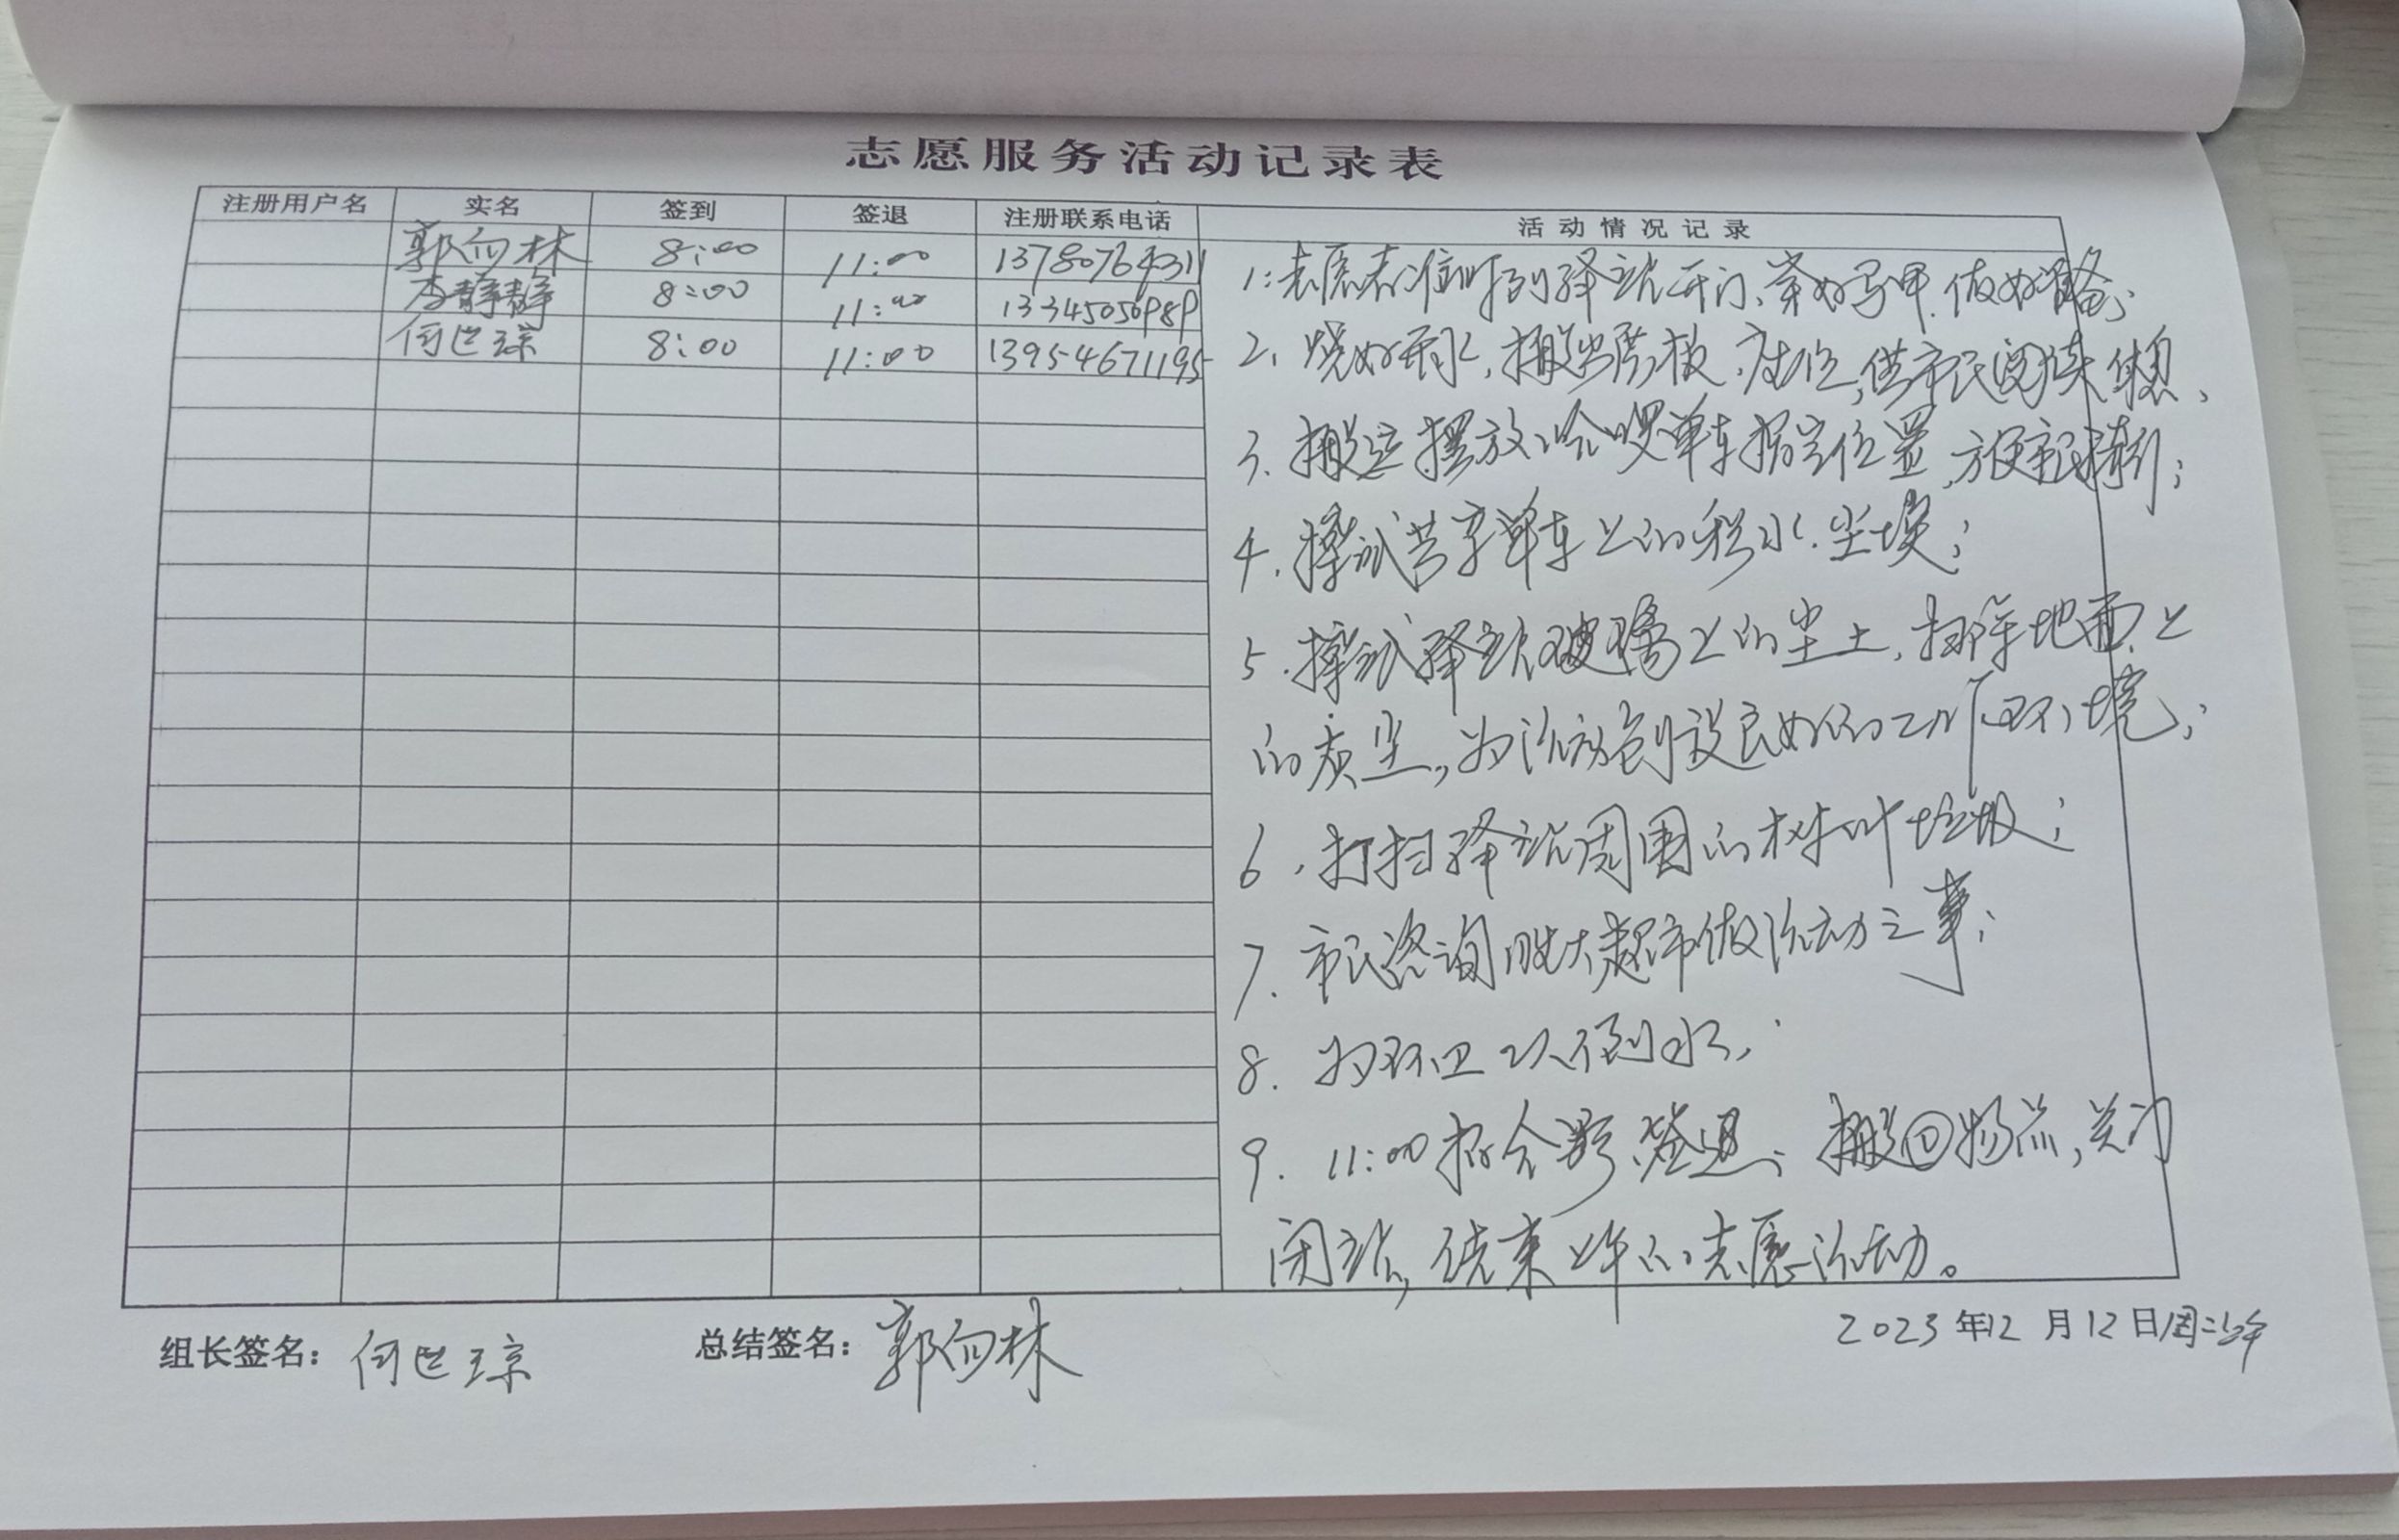 志愿服务活动记录表
注册用户名 实名 签到 签退 注册联系电话 活动情况记录
郭向林 8:00 11:00 13780764311
李静静 8:00 11:00 13345056989
何世琼 8:00 11:00 13954671195
1:志愿者准时到驿站开门、穿好马甲.做好准备;
2、烧好开水,搬出展板、座位,供市民阅读休息、
3、搬运摆放哈啰单车指定位置,方便市民骑行;
4.擦拭共享单车上的积水.尘埃;
5.擦拭驿站玻璃上的尘土,扫除地面上
的灰尘,为活动创设良好的工作环境;
6.打扫驿站周围的树叶垃圾;
7.市民咨询胜大超市做活动之事;
8.为环卫工人倒水;
9.11:00 拍合影签退、搬回物品,关门
闭站,结束上午的志愿活动。
组长签名:何世琼 总结签名:郭向林 2023年12月12日周二上午